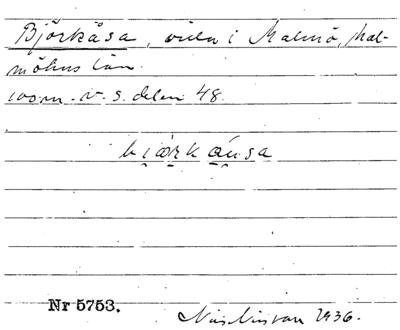 Björkåsa, villa i Malmö, Mal-
möhus län.
100 m. v. s. delen 48.
björkåusa
Nr 5753.
Nils Nilsson 1936.